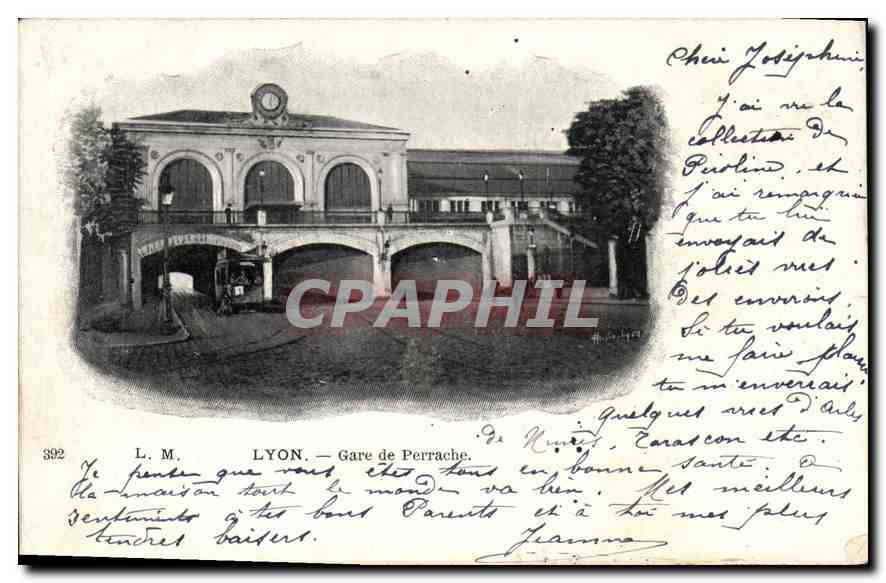 Chère Joséphine,
J'ai vu la
collection de
Piroline, et
j'ai remarqué
que tu lui
envoyais de
jolies vues
des environs.
Si tu voulais
me faire plaisir
tu m'enverrais
quelques vues d'Arles
de Nimes, Tarascon etc.
CAPHIL
392 L. M. LYON. — Gare de Perrache.
Je pense que vous êtes tous en bonne santé. à
la maison tout le monde va bien. Mes meilleurs
sentiments à tes bons Parents et à toi mes plus
tendres baisers.
Jeanne